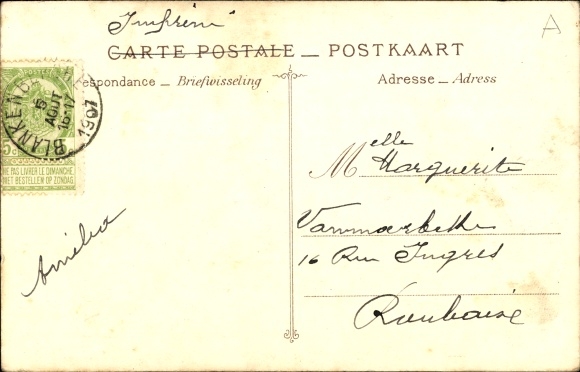 Imprimé
A
CARTE POSTALE — POSTKAART
espondance — Briefwisseling
Adresse — Adress
BLANKENB
5
AOUT
16-17
1907
POSTES
5c
NE PAS LIVRER LE DIMANCHE
NIET BESTELLEN OP ZONDAG
Melle Marguerite
16 Rue Ingres
Roubaix
Amélie